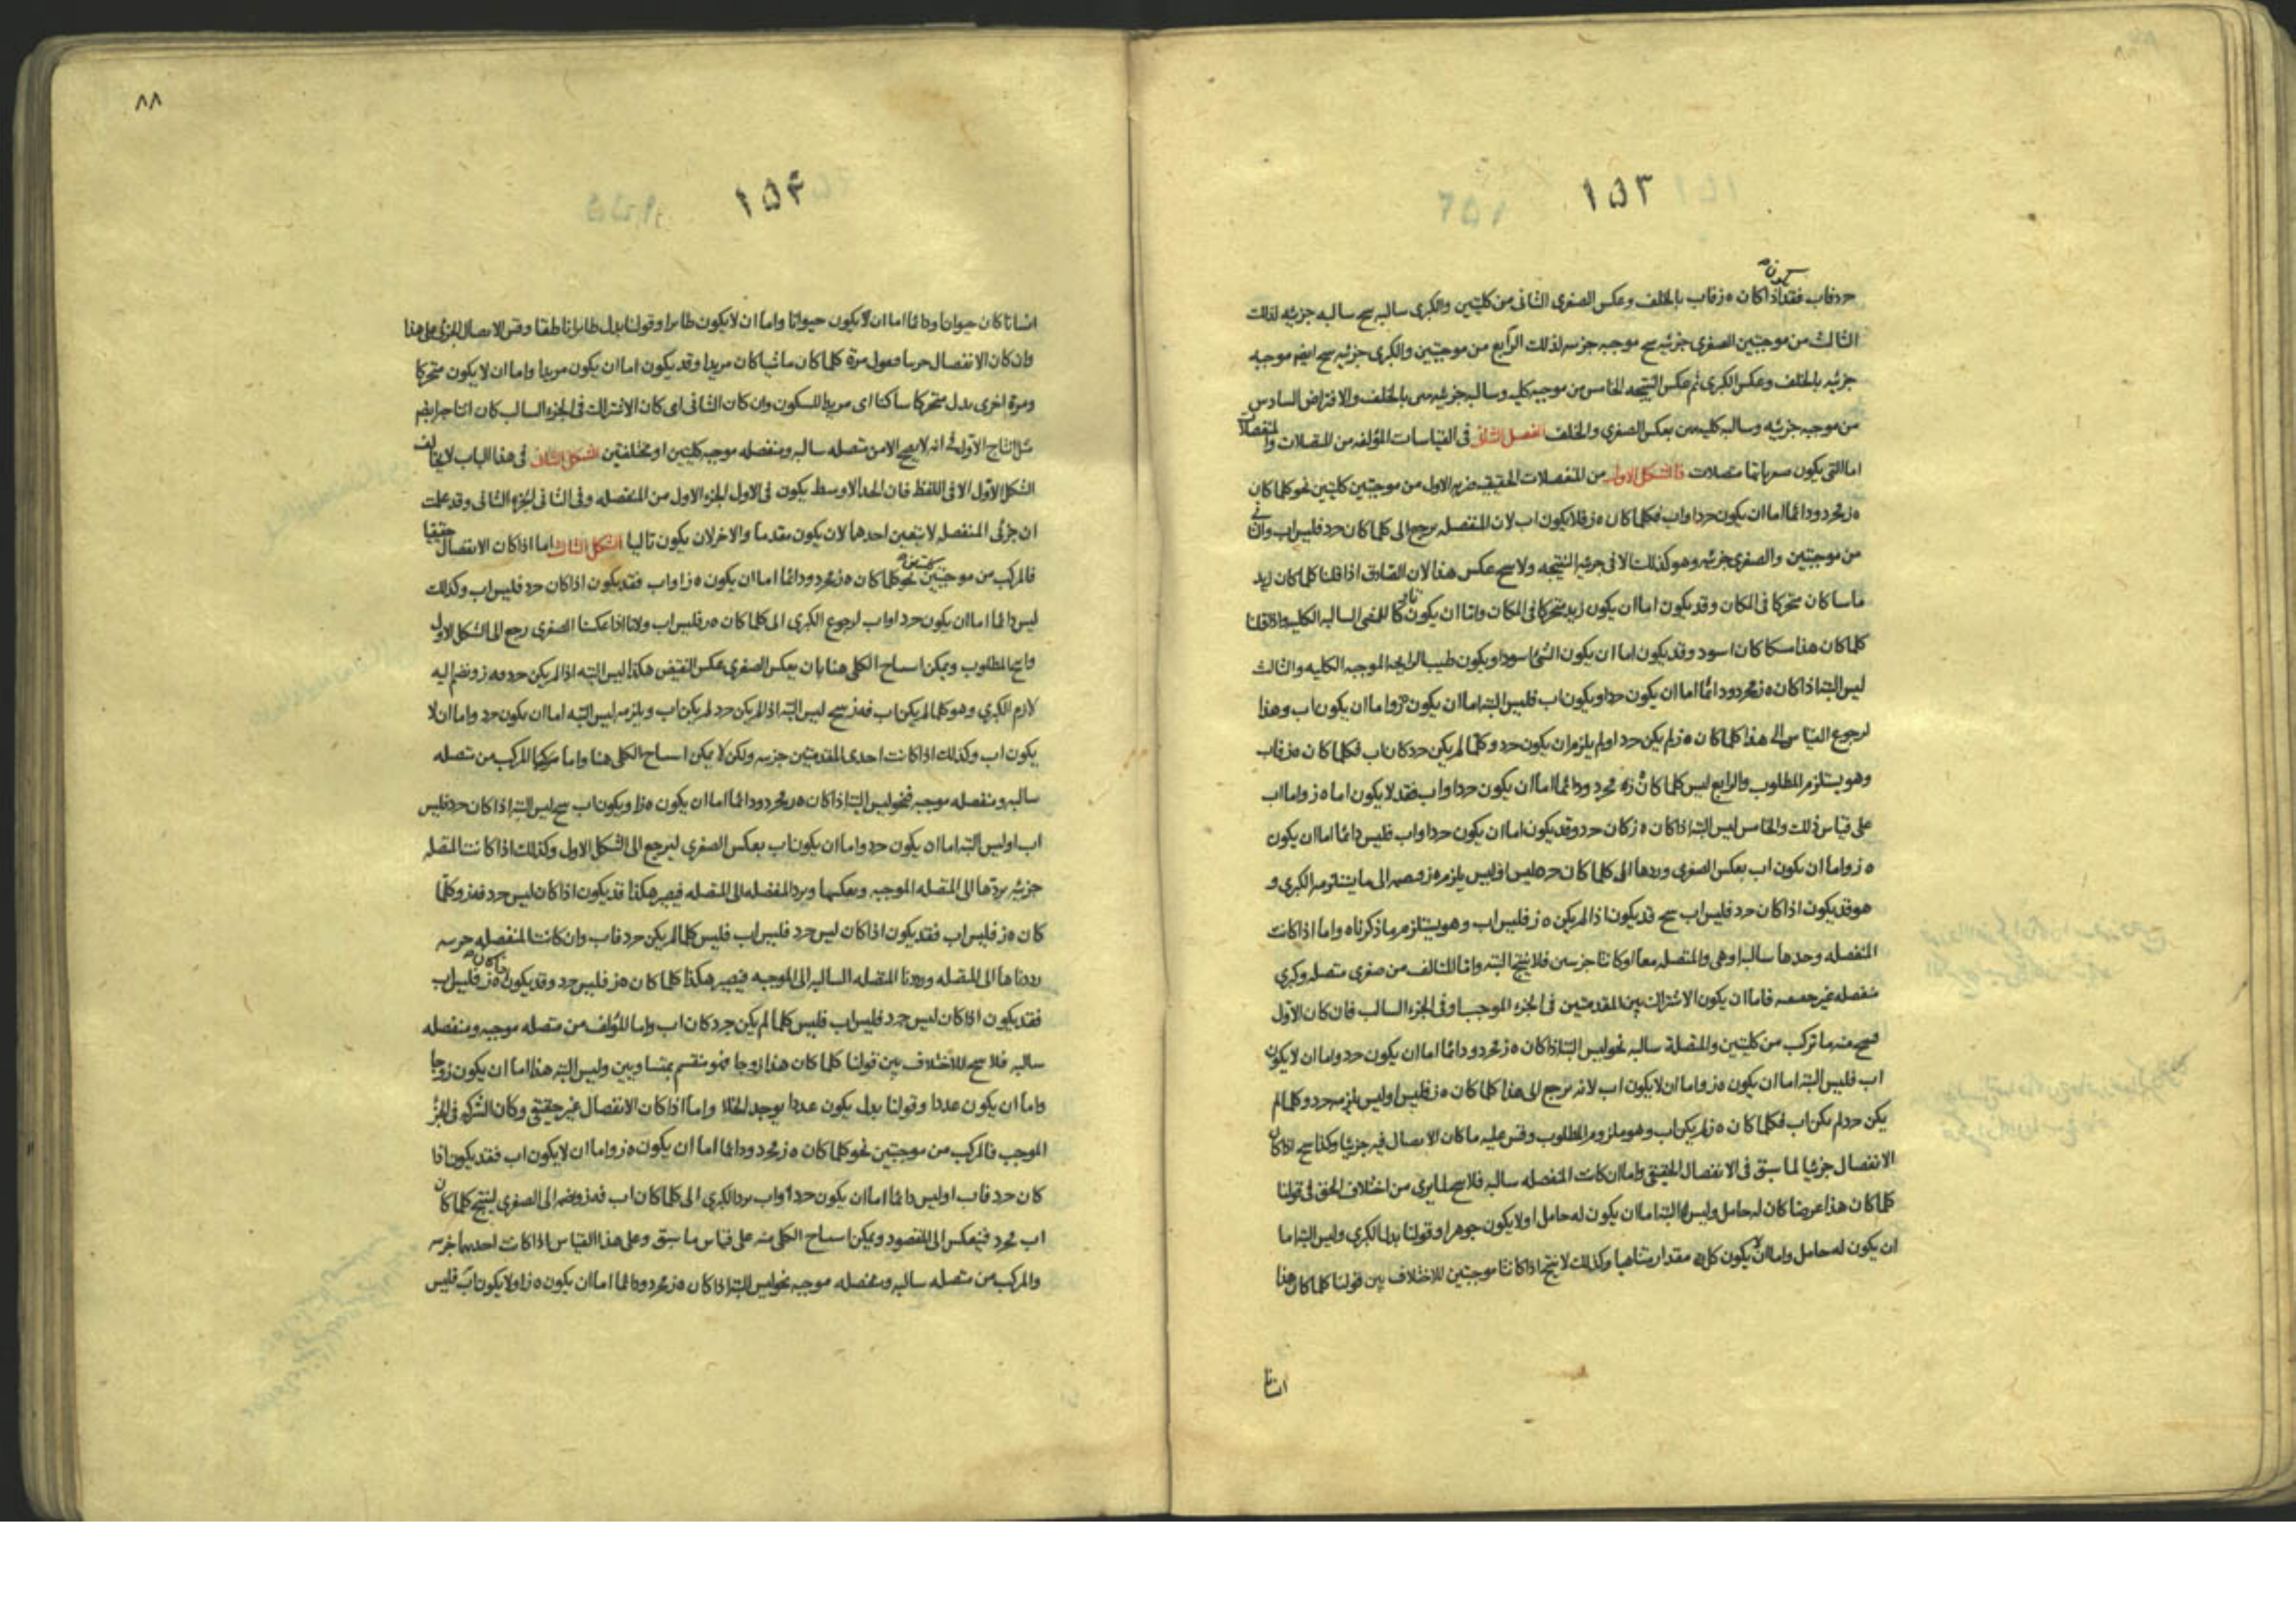 ١٥٣
يكون
حرد فاب فقد اذا كان ه ز فاب بالخلف وعكس الصغرى الثانى من كليتين والكبرى سالبه سح سالبه جزئيه لذلك
الثالث من موجبتين الصغرى جزئيه سح موجبه جزئيه لذلك الرابع من موجبتين والكبرى جزئيه سح ايضا موجبه
جزئيه بالخلف وعكس الكبرى ثم عكس النتيجه الخامس من موجبه كليه وسالبه جزئيه بالخلف والافتراض السادس
من موجبه جزئيه وسالبه كليه بعكس الصغرى والخلف الفصل الثانى فى القياسات المؤلفه من المتصلات والمنفصلات
اما التى يكون متصلات فالشكل الاول من المنفصلات الحقيقيه ضربه الاول من موجبتين كليتين نحو كلما كان
ه ز فحرد ودائما اما ان يكون حرد او اب فكلما كان ه ز فلا يكون اب لان المنفصله يرجع الى كلما كان حرد فليس اب والثانى
من موجبتين والصغرى جزئيه وهو كذلك الا فى جزئيه النتيجه ولا سح عكس هذا لان الصادق اذا قلنا كلما كان زيد
ماسا كان متحركا فى المكان وقد يكون اما ان يكون زيد متحركا فى المكان واما ان يكون السالبه الكليه واذا قلنا
كلما كان هذا مسكا كان اسود وقد يكون اما ان يكون الشئ اسود او يكون طيب الرايحه الموجبه الكليه والثالث
ليس البته اذا كان ه ز فحرد ودائما اما ان يكون حرد او يكون اب فليس البته اما ان يكون ه ز واما ان يكون اب وهذا
لرجوع القياس الى هذا كلما كان ه ز لم يكن حرد او لم يلزم ان يكون حرد وكلما لم يكن حرد كان اب فكلما كان ه ز فاب
وهو يستلزم المطلوب والرابع ليس كلما كان ه ز فحرد ودائما اما ان يكون حرد او اب فقد لا يكون اما ه ز واما اب
على قياس ذلك والخامس ليس البته اذا كان ه ز كان حرد وقد يكون اما ان يكون حرد او اب فليس دائما اما ان يكون
ه ز واما ان يكون اب بعكس الصغرى وردها الى كلما كان حرد فليس يلزمه ه ز الى ما يستلزمه الكبرى و
هو قد يكون اذا كان حرد فليس اب سح قد يكون اذا لم يكن ه ز فليس اب وهو يستلزم ما ذكرناه واما اذا كانت
المنفصله وحدها سالبه او هى والمتصله معا او كانتا جزئيتين فلا ينتج البته واما المتالف من صغرى متصله وكبرى
منفصله غير حقيقيه فاما ان يكون الاشتراك بين المقدمتين فى الجزء الموجب او فى الجزء السالب فان كان الاول
سح منه ما تركب من كليتين والمتصلة سالبه نحو ليس البته اذا كان ه ز فحرد ودائما اما ان يكون حرد واما ان لا يكون
اب فليس البته اما ان يكون ه ز واما ان لا يكون اب لانه يرجع الى هذا كلما كان ه ز فليس او ليس يلزمه حرد وكلما لم
يكن حرد لم يكن اب فكلما كان ه ز لم يكن اب وهو ملزوم المطلوب وقس عليه ما كان الاتصال فيه جزئيا وكذا سح اذا كان
الانفصال جزئيا لما سبق فى الانفصال الحقيقى واما ان كانت المنفصله سالبه فلا سح لما يرى من اختلاف الحق فى قولنا
كلما كان هذا عرضا كان له حامل وليس البته اما ان يكون له حامل او لا يكون جوهرا وقولنا بدل الكبرى وليس البته اما
ان يكون له حامل واما ان لا يكون كل مقدار متناهيا وكذلك لا ينتج اذا كانتا موجبتين للاختلاف بين قولنا كلما كان هذا
انسانا
٨٨
١٥۴
انسانا كان حيوانا ودائما اما ان لا يكون حيوانا واما ان لا يكون طايرا وقولنا بدل طايرا ناطقا وقس الاتصال الجزئى على هذا
وان كان الانفصال جزئيا فيقول مرة كلما كان ماشيا كان مريدا وقد يكون اما ان يكون مريدا واما ان لا يكون متحركا
ومرة اخرى بدل متحركا ساكنا اى مريدا للسكون وان كان الثانى اى كان الاشتراك فى الجزء السالب كان انتاجه ايضا
مثل انتاج الاول فى انه لا يصح الا من متصله سالبه ومنفصله موجبه كليتين او مختلفتين الشكل الثانى فى هذا الباب لا يخالف
الشكل الاول الا فى اللفظ فان الحد الاوسط يكون فى الاول الجزء الاول من المنفصله وفى الثانى الجزء الثانى وقد علمت
ان جزئى المنفصله لا يتعين احدهما لان يكون مقدما والاخر لان يكون تاليا الشكل الثالث اما اذا كان الانفصال حقيقيا
فالمركب من موجبتين كليتين نحو كلما كان ه ز فحرد ودائما اما ان يكون ه ز او اب فقد يكون اذا كان حرد فليس اب وكذلك
ليس دائما اما ان يكون حرد او اب لرجوع الكبرى الى كلما كان ه ز فليس اب ولانا اذا عكسنا الصغرى رجع الى الشكل الاول
وانتج المطلوب ويمكن استنتاج الكلى هنا بان يعكس الصغرى عكس النقيض هكذا ليس البته اذا لم يكن حرد فه ز ونضم اليه
لازم الكبرى وهو كلما لم يكن اب فه ز سح ليس البته اذا لم يكن حرد لم يكن اب ويلزمه ليس البته اما ان يكون حرد واما ان لا
يكون اب وكذلك اذا كانت احدى المقدمتين جزئيه ولكن لا يمكن استنتاج الكلى هنا واما المركب من متصله
سالبه ومنفصله موجبه فنحو ليس البته اذا كان ه ز فحرد ودائما اما ان يكون ه ز او يكون اب سح ليس البته اذا كان حرد فليس
اب او ليس البته اما ان يكون حرد واما ان يكون اب بعكس الصغرى ليرجع الى الشكل الاول وكذلك اذا كانت المتصله
جزئيه بردها الى المتصله الموجبه وبعكسها وبرد المنفصله الى المتصله فيصير هكذا قد يكون اذا كان ليس حرد فه ز وكلما
كان ه ز فليس اب فقد يكون اذا كان ليس حرد فليس اب فليس كلما لم يكن حرد فاب وان كانت المنفصله جزئيه
رددناها الى المتصله ورددنا المتصله السالبه الى الموجبه فيصير هكذا كلما كان ه ز فليس حرد وقد يكون اذا كان ه ز فليس اب
فقد يكون اذا كان ليس حرد فليس اب فليس كلما لم يكن حرد كان اب واما المؤلف من متصله موجبه ومنفصله
سالبه فلا سح للاختلاف بين قولنا كلما كان هذا زوجا فهو منقسم بمتساويين وليس البته هذا اما ان يكون زوجا
واما ان يكون عددا وقولنا بدل يكون عددا يوجد الخلا واما اذا كان الانفصال غير حقيقى وكان الشركه فى الجزء
الموجب فالمركب من موجبتين نحو كلما كان ه ز فحرد ودائما اما ان يكون ه ز واما ان لا يكون اب فقد يكون اذا
كان حرد فاب او ليس دائما اما ان يكون حرد او اب برد الكبرى الى كلما كان اب فه ز وضمه الى الصغرى لينتج كلما كان
اب فحرد فينعكس الى المقصود ويمكن استنتاج الكلى منه على قياس ما سبق وعلى هذا القياس اذا كانت احديهما جزئيه
والمركب من متصله سالبه ومنفصله موجبه نحو ليس البته اذا كان ه ز فحرد ودائما اما ان يكون ه ز او لا يكون اب فليس